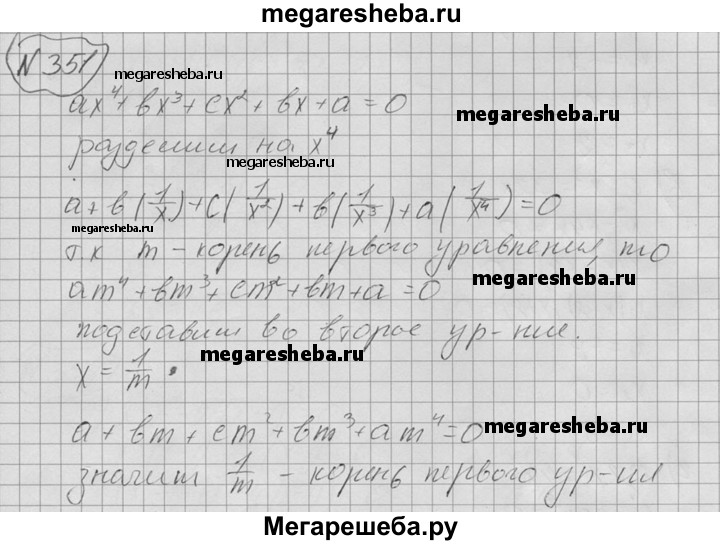 megaresheba.ru
N 351
megaresheba.ru
ax⁴+bx³+cx²+bx+a=0
megaresheba.ru
разделим на x⁴
megaresheba.ru
a+b(1/x)+c(1/x²)+b(1/x³)+a(1/x⁴)=0
тк m - корень первого уравнения, то
am⁴+bm³+cm²+bm+a=0
megaresheba.ru
подставим во второе ур-ние.
megaresheba.ru
x = 1/m
a+bm+cm²+bm³+am⁴=0
megaresheba.ru
значит 1/m - корень первого ур-ия
Мегарешеба.ру